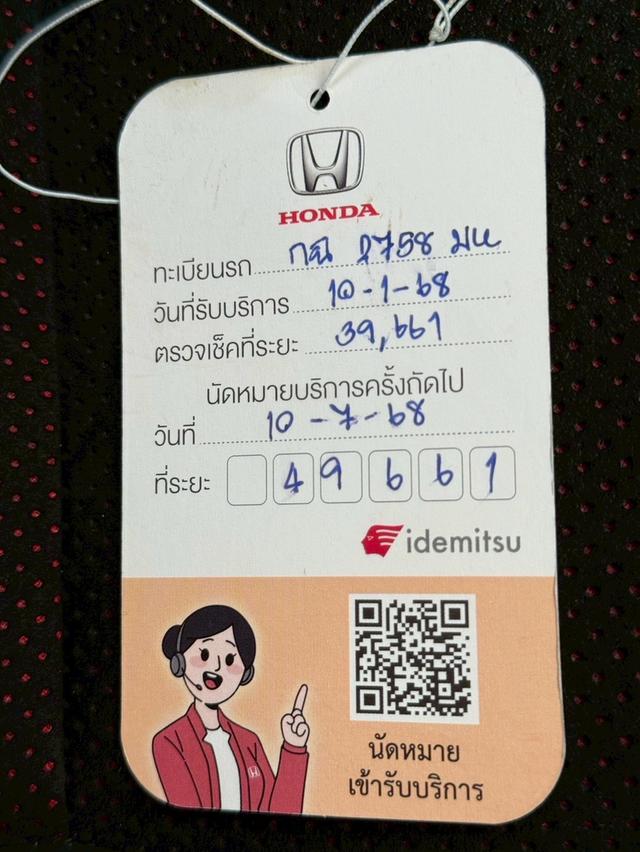 HONDA
ทะเบียนรถ กฉ 2758 มห
วันที่รับบริการ 10-1-68
ตรวจเช็คที่ระยะ 39,661
นัดหมายบริการครั้งถัดไป
วันที่ 10-7-68
ที่ระยะ 49661
idemitsu
นัดหมาย
เข้ารับบริการ